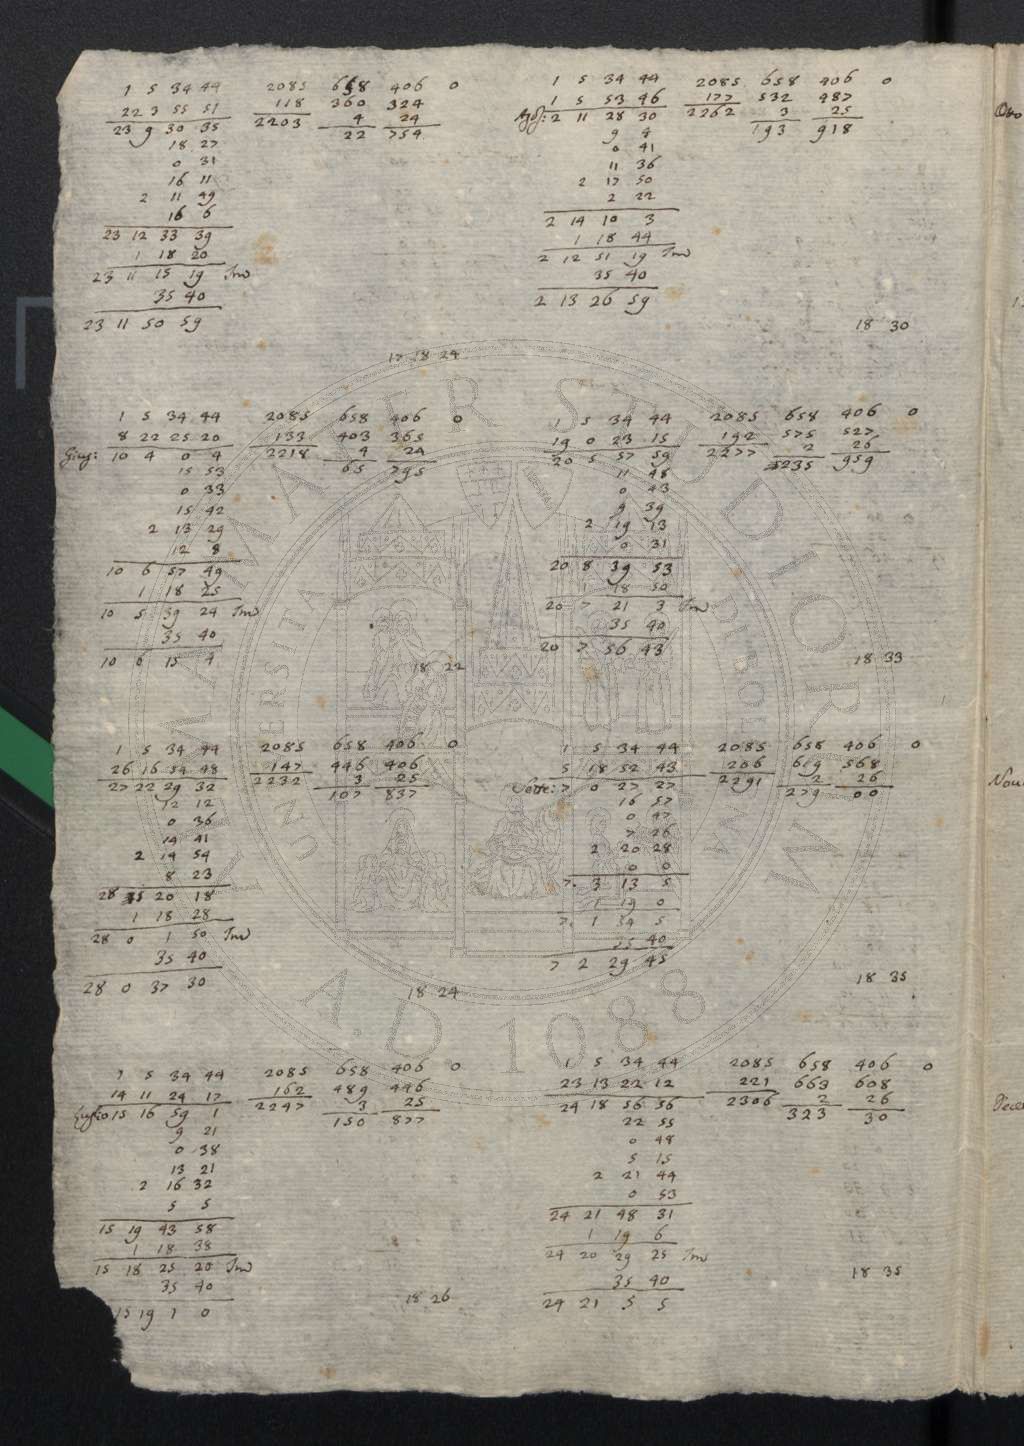 1 5 34 44 2085 658 406 0
22 3 55 51 118 360 324
23 9 30 35 2203 4 24
18 27 22 754
0 31
16 11
2 11 49
16 6
23 12 33 39
1 18 20
23 11 15 19
35 40
23 11 50 59
17 18 24
1 5 34 44 2085 658 406 0
8 22 25 20 133 403 365
Giug: 10 4 0 4 2218 4 24
15 53 65 795
0 33
15 42
2 13 29
12 8
10 6 57 49
1 18 25
10 5 39 24
35 40
10 6 15 4
18 22
1 5 34 44 2085 658 406 0
26 16 54 48 147 446 406
27 22 29 32 2232 3 25
12 12 107 837
0 36
14 41
2 14 54
8 23
28 20 18
1 18 28
28 0 1 50
35 40
28 0 37 30
18 24
1 5 34 44 2085 658 406 0
14 11 24 17 162 489 446
15 16 59 1 2247 3 25
9 21 150 877
0 38
13 21
2 16 32
5 5
15 19 43 58
1 18 38
15 18 25 20
35 40
15 19 1 0
18 26
1 5 34 44 2085 658 406 0
1 5 53 46 177 532 487
2 11 28 30 2262 3 25
9 4 193 918
0 41
11 36
2 17 50
2 22
2 14 10 3
1 18 44
2 12 51 19
35 40
2 13 26 59
18 30
1 5 34 44 2085 658 406 0
19 0 23 15 192 575 527
20 5 57 59 2277 2 26
11 48 235 959
0 43
9 39
2 19 13
0 31
20 8 39 53
1 18 50
20 7 21 3
35 40
20 7 56 43
18 33
1 5 34 44 2085 658 406 0
5 18 52 43 206 619 568
Sette: 7 0 27 27 2291 2 26
16 57 279 00
0 47
7 26
2 20 28
0 0
7. 3 13 5
1 19 0
7. 1 54 5
35 40
7 2 29 45
18 35
1 5 34 44 2085 658 406 0
23 13 22 12 221 663 608
24 18 56 56 2306 2 26
22 55 323 30
0 48
5 15
2 21 44
0 53
24 21 48 31
1 19 6
24 20 29 25
35 40
24 21 5 5
18 35
ALMA MATER STUDIORUM
UNIVERSITÀ DI BOLOGNA
A.D. 1088